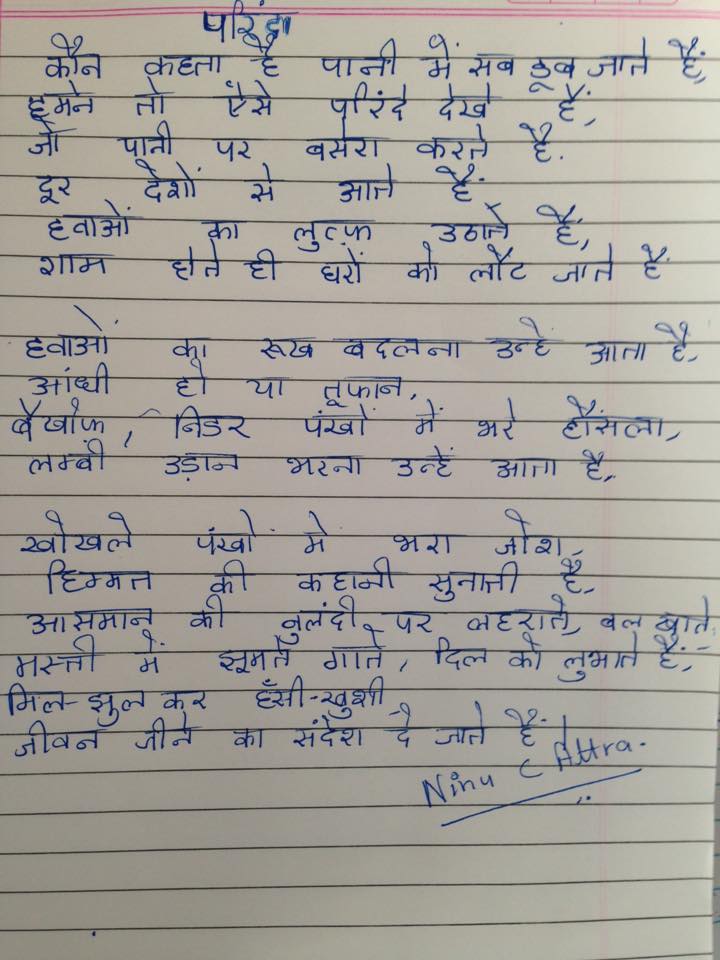 परिंदा
कौन कहता है पानी में सब डूब जाते हैं,
हमने तो ऐसे परिंदे देखे हैं,
जो पानी पर बसेरा करते हैं.
दूर देशों से आते हैं,
हवाओं का लुत्फ़ उठाते हैं,
शाम होते ही घरों को लौट जाते हैं
हवाओं का रूख बदलना उन्हे आता है,
आंधी हो या तूफान,
बेखौफ, निडर पंखों में भरे हौंसला,
लम्बी उड़ान भरना उन्हें आता है,
खोखले पंखों मे भरा जोश,
हिम्मत की कहानी सुनाती है,
आसमान की बुलंदी पर लहराते, बल खाते
मस्ती में झूमते गाते, दिल को लुभाते हैं,
मिल-झुल कर हँसी-खुशी
जीवन जीने का संदेश दे जाते हैं।
Ninu C Attra.